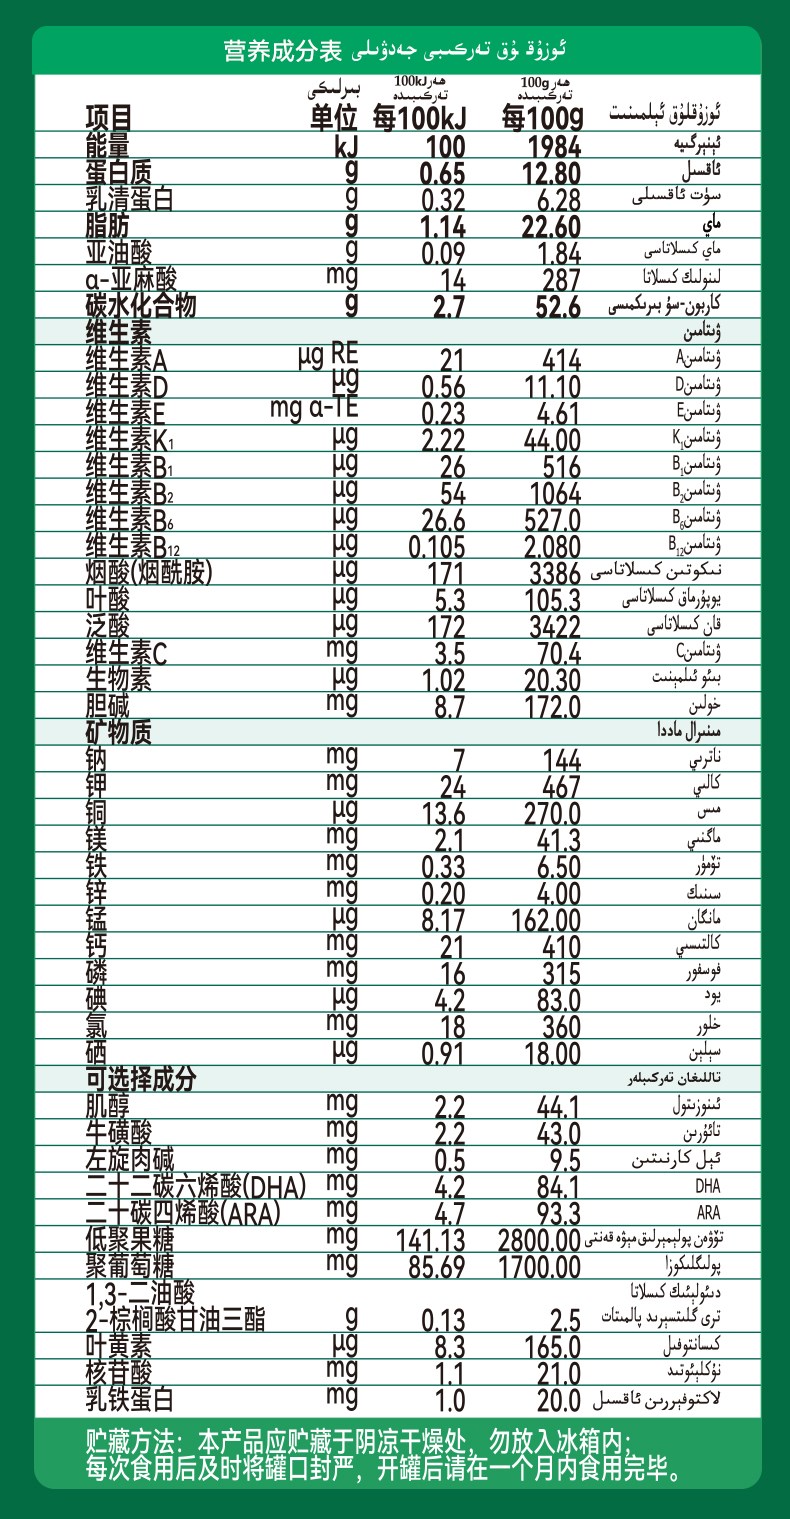 营养成分表 ئوزۇقلۇق تەركىبى جەدۋىلى
项目 单位 بىرلىكى 每100kJ هەر100kJ تەركىبىدە 每100g هەر100g تەركىبىدە ئوزۇقلۇق ئېلمىنىت
能量 kJ 100 1984 ئېنېرگىيە
蛋白质 g 0.65 12.80 ئاقسىل
乳清蛋白 g 0.32 6.28 سۈت ئاقسىلى
脂肪 g 1.14 22.60 ماي
亚油酸 g 0.09 1.84 ماي كىسلاتاسى
α-亚麻酸 mg 14 287 لىنولىك كىسلاتا
碳水化合物 g 2.7 52.6 كاربون-سۇ بىرىكمىسى
维生素 ۋىتامىن
维生素A μg RE 21 414 ۋىتامىنA
维生素D μg 0.56 11.10 ۋىتامىنD
维生素E mg α-TE 0.23 4.61 ۋىتامىنE
维生素K₁ μg 2.22 44.00 ۋىتامىنK₁
维生素B₁ μg 26 516 ۋىتامىنB₁
维生素B₂ μg 54 1064 ۋىتامىنB₂
维生素B₆ μg 26.6 527.0 ۋىتامىنB₆
维生素B₁₂ μg 0.105 2.080 ۋىتامىنB₁₂
烟酸(烟酰胺) μg 171 3386 نىكوتىن كىسلاتاسى
叶酸 μg 5.3 105.3 يوپۇرماق كىسلاتاسى
泛酸 μg 172 3422 قان كىسلاتاسى
维生素C mg 3.5 70.4 ۋىتامىنC
生物素 μg 1.02 20.30 بىئو ئىلمېنىت
胆碱 mg 8.7 172.0 خولىن
矿物质 مىنىرال ماددا
钠 mg 7 144 ناترىي
钾 mg 24 467 كالىي
铜 μg 13.6 270.0 مىس
镁 mg 2.1 41.3 ماگنىي
铁 mg 0.33 6.50 تۆمۈر
锌 mg 0.20 4.00 سىنىك
锰 μg 8.17 162.00 مانگان
钙 mg 21 410 كالتىسىي
磷 mg 16 315 فوسفور
碘 μg 4.2 83.0 يود
氯 mg 18 360 خلور
硒 μg 0.91 18.00 سېلېن
可选择成分 تاللىغان تەركىبلەر
肌醇 mg 2.2 44.1 ئىنوزىتول
牛磺酸 mg 2.2 43.0 تائۇرىن
左旋肉碱 mg 0.5 9.5 ئېل كارنىتىن
二十二碳六烯酸(DHA) mg 4.2 84.1 DHA
二十碳四烯酸(ARA) mg 4.7 93.3 ARA
低聚果糖 mg 141.13 2800.00 تۆۋەن پولىمېرلىق مېۋە قەنتى
聚葡萄糖 mg 85.69 1700.00 پولىگلىكوزا
1,3-二油酸 دىئولېئىك كىسلاتا
2-棕榈酸甘油三酯 g 0.13 2.5 ترى گلىتسېرىد پالمىتات
叶黄素 μg 8.3 165.0 كسانتوفىل
核苷酸 mg 1.1 21.0 نۇكلېئوتىد
乳铁蛋白 mg 1.0 20.0 لاكتوفېررىن ئاقسىل
贮藏方法：本产品应贮藏于阴凉干燥处，勿放入冰箱内；
每次食用后及时将罐口封严，开罐后请在一个月内食用完毕。